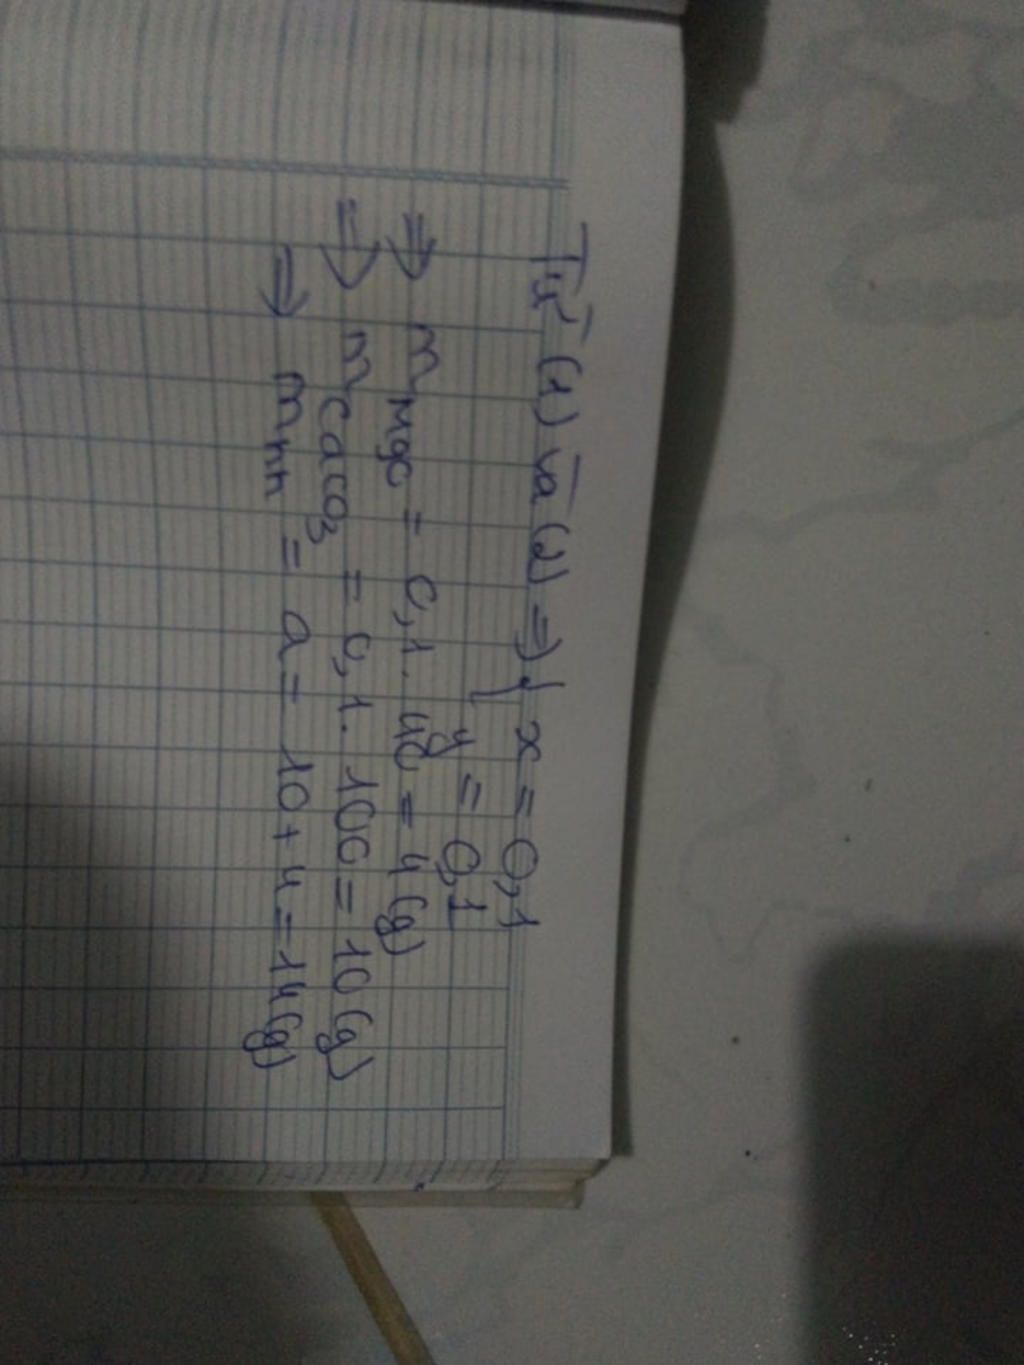 Từ (1) và (2) => { x = 0,1
y = 0,1
=> mMgO = 0,1. 40 = 4 (g)
=> mCaCO3 = 0,1. 100 = 10 (g)
=> mhh = a = 10 + 4 = 14 (g)